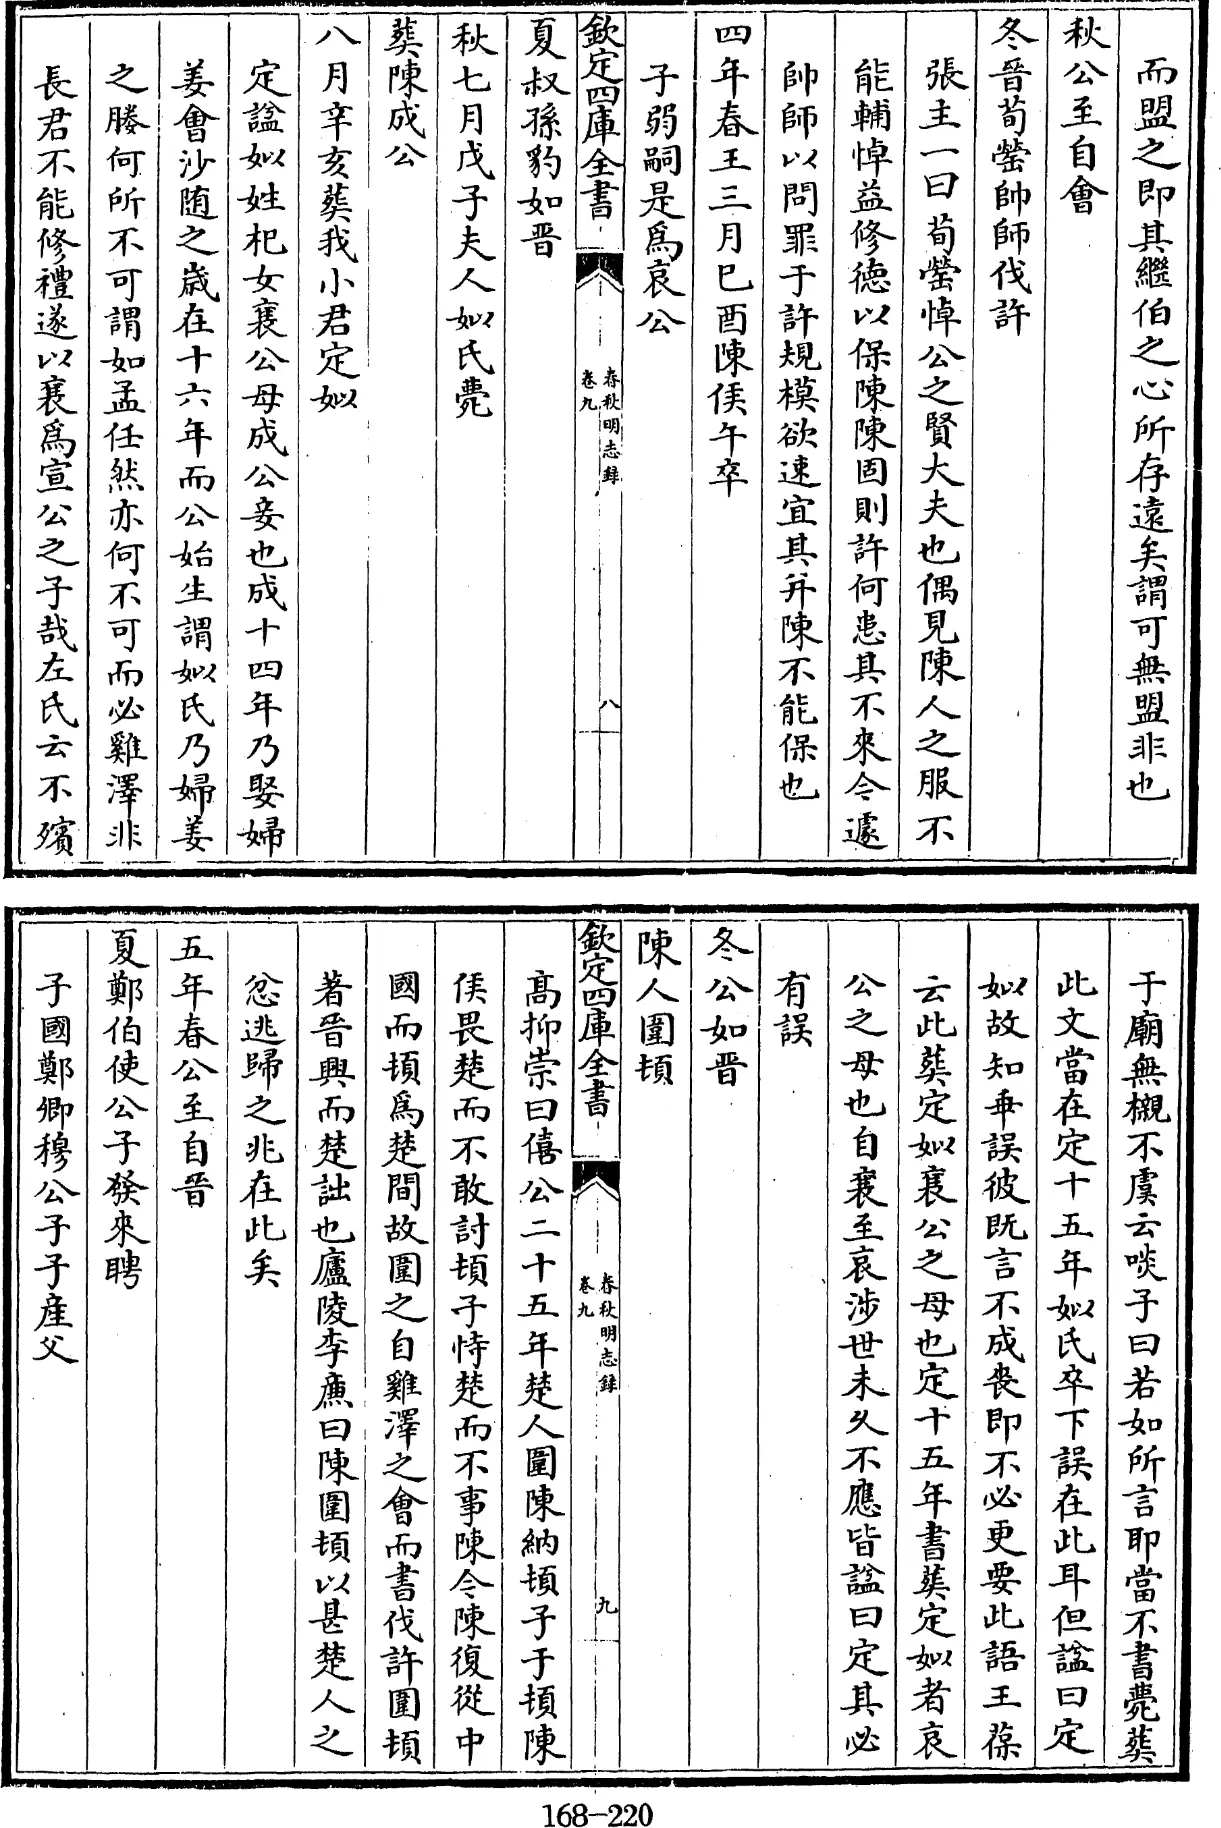 而盟之即其繼伯之心所存遠矣謂可無盟非也
秋公至自會
冬晉荀罃帥師伐許
張主一曰荀罃悼公之賢大夫也偶見陳人之服不
能輔悼益修德以保陳陳固則許何患其不來今遽
帥師以問罪于許規模欲速宜其并陳不能保也
四年春王三月已酉陳侯午卒
子弱嗣是爲哀公
欽定四庫全書
春秋明志録
卷九
八
夏叔孫豹如晉
秋七月戊子夫人姒氏薨
葬陳成公
八月辛亥葬我小君定姒
定諡姒姓杞女襄公母成公妾也成十四年乃娶婦
姜會沙随之歲在十六年而公始生謂姒氏乃婦姜
之媵何所不可謂如孟任然亦何不可而必雞澤非
長君不能修禮遂以襄爲宣公之子哉左氏云不殯
于廟無櫬不虞云啖子曰若如所言耶當不書薨葬
此文當在定十五年姒氏卒下誤在此耳但諡曰定
姒故知乖誤彼既言不成喪即不必更要此語王葆
云此葬定姒襄公之母也定十五年書葬定姒者哀
公之母也自襄至哀涉世未久不應皆諡曰定其必
有誤
冬公如晉
陳人圍頓
欽定四庫全書
春秋明志録
卷九
九
髙抑崇曰僖公二十五年楚人圍陳納頓子于頓陳
侯畏楚而不敢討頓子恃楚而不事陳今陳復從中
國而頓爲楚間故圍之自雞澤之會而書伐許圍頓
著晉興而楚詘也廬陵李廉曰陳圍頓以甚楚人之
忿逃歸之兆在此矣
五年春公至自晉
夏鄭伯使公子發來聘
子國鄭卿穆公子子産父
168-220